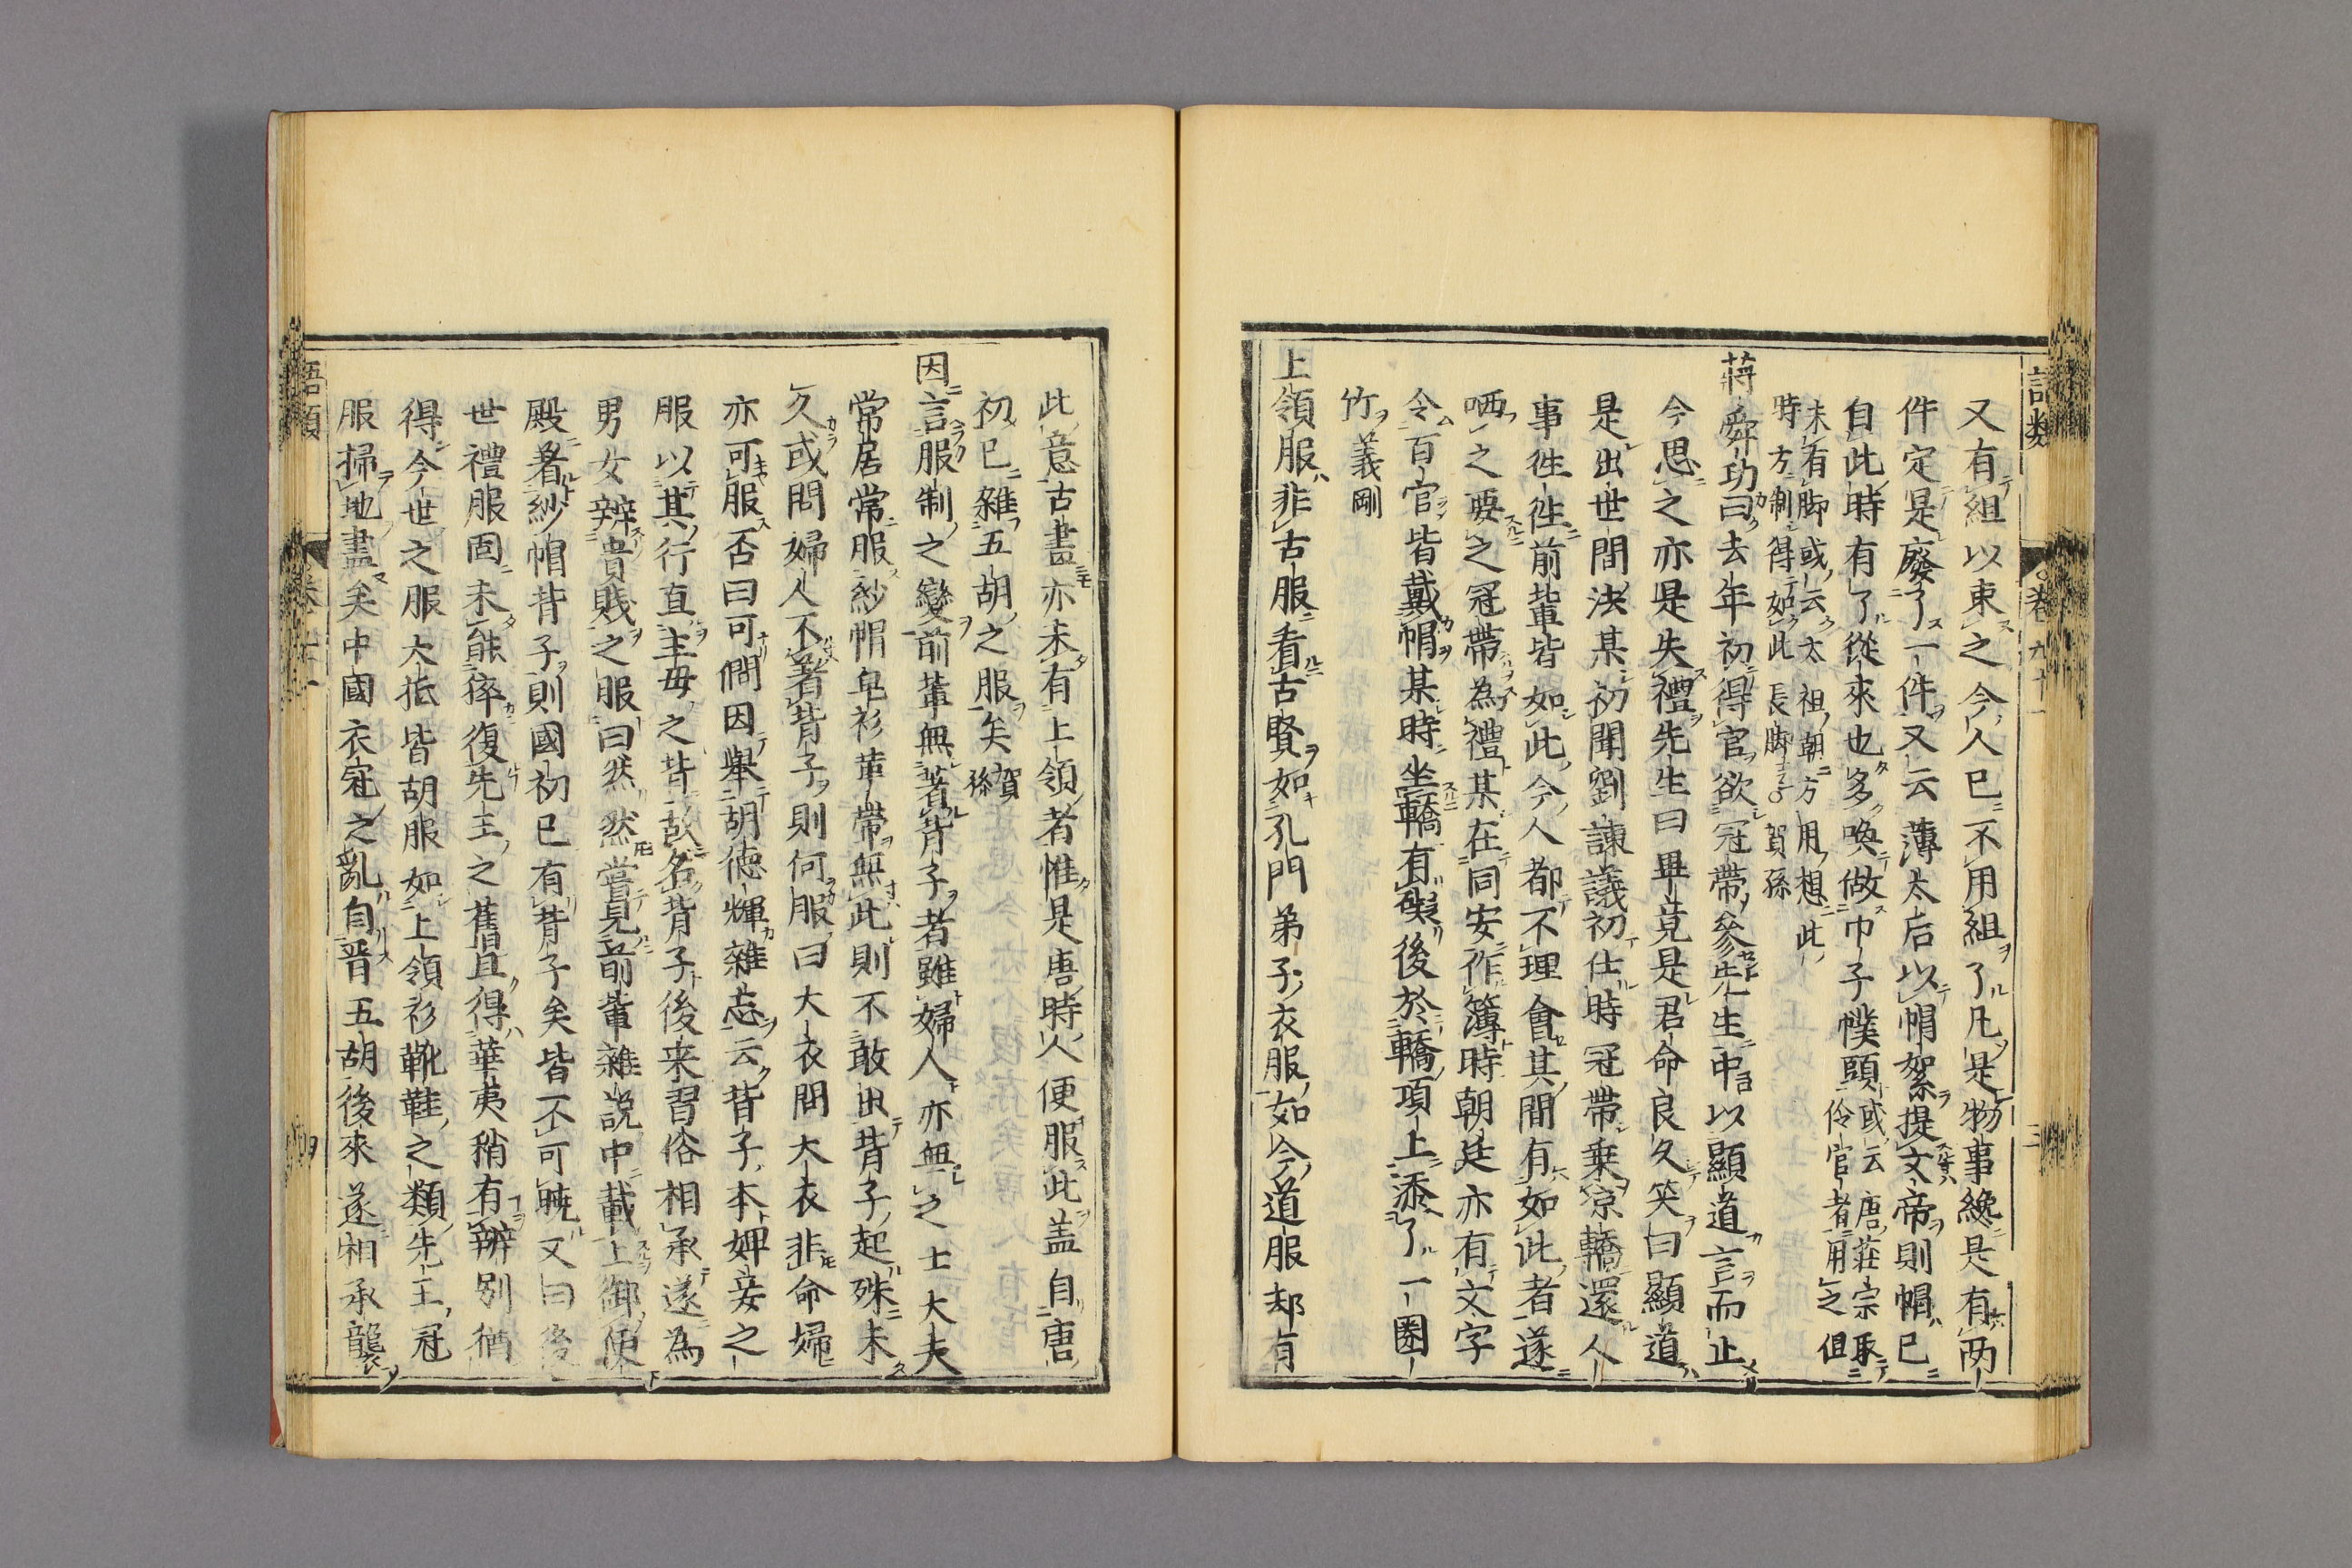 語類
卷九十一
三
又有組以束之今人已不用組了凡是物事纔是有兩
件定是廢了一件又云薄太后以帽絮提文帝則帽已
自此時有了從來也多喚做巾子幞頭或云唐莊宗取
伶官者用之但
未有脚或云太祖朝方用想此
時方制得如此長脚賀孫
蔣舜功曰去年初得官欲冠帶參先生中以顯道言而止
今思之亦是失禮先生曰畢竟是君命良久笑曰顯道
是出世間法某初聞劉諫議初仕時冠帶乗凉轎還人
事徃徃前輩皆如此今人都不理會其間有如此者遂
哂之要之冠帶為禮某在同安作簿時朝廷亦有文字
令百官皆戴帽某時坐轎有礙後於轎項上添了一圏
竹義剛
上領服非古服看古賢如孔門弟子衣服如今道服却有
此意古畫亦未有上領者惟是唐時人便服此盖自唐
初已雜五胡之服矣賀孫
因言服制之變前輩無著背子者雖婦人亦無之士大夫
常居常服紗帽皁衫革帶無此則不敢出背子起殊未
久或問婦人不著背子則何服曰大衣問大衣非命婦
亦可服否曰可僩因舉胡德輝雜志云背子本婢妾之
服以其行直主母之背故名背子後来習俗相承遂為
男女辨貴賤之服曰然然嘗見前輩雜說中載上御便
殿着紗帽背子則國初已有背子矣皆不可曉又曰後
世禮服固未能猝復先王之舊且得華夷稍有辨別猶
得今世之服大抵皆胡服如上領衫靴鞋之類先王冠
服掃地盡矣中國衣冠之亂自晋五胡後來遂相承襲
語類